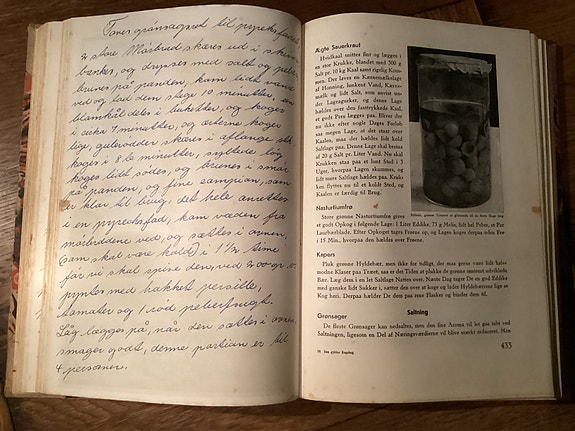 Toves grønsagsret til pyreksfadet
2 store Mørbrad skæres ud i skiver
bankes, og drysses med salt og peber
brunes på panden, kom lidt vand
ved og lad dem stege 10 minutter,
blomkål deles i buketter, og koges
i cirka 7 minutter, og ærterne koges
lige, gulerødder skæres i aflange stk
koges i 8 minutter, syltede løg
koges lidt søde, og brunes i smør
på panden, og fine sampion, som
er klar til brug, det hele anrettes
i en pyreksfad, kom væden fra
mørbraddene ved, og sættes i ovnen,
(som skal være kold) i 1 ½ time
før vi skal spise den, ved 200 gr.
pyntes med hakket persille,
tomater og 1 rød peberfrugt.
Låg lægges på, når den sættes i ovnen
smager godt, denne portion er til
4 personer.
Ægte Sauerkraut
Hvidkaal snittes fint og lægges i
en stor Krukke, blandet med 300 g
Salt pr. 10 kg Kaal samt rigelig Kom-
men. Der laves en Kærnemælkslage
af Honning, lunkent Vand, Kærne-
mælk og lidt Salt, som anvist un-
der Lageagurker, og denne Lage
hældes over den fasttrykkede Kaal,
et godt Pres lægges paa. Bliver der
nu ikke efter nogle Dages Forløb
saa megen Lage, at det staar over
Kaalen, maa der hældes lidt kold
Saltlage paa. Denne Lage skal bestaa
af 20 g Salt pr. Liter Vand. Nu skal
Krukken staa paa et lunt Sted i 3
Uger, hvorpaa Lagen skummes, og
lidt mere Saltlage hældes paa. Kruk-
ken flyttes nu til et koldt Sted, og
Kaalen er færdig til Brug.
Nasturtiumfrø
Store grønne Nasturtiumfrø gives
et godt Opkog i følgende Lage: 1 Liter Eddike, 75 g Melis, lidt hel Peber, et Par
Laurbærblade. Efter Opkoget tages Frøene op, og Lagen koges derpaa uden Frø
i 15 Min., hvorpaa den hældes over Frøene.
Kapers
Pluk grønne Hyldebær, men ikke for tidligt, der maa gerne være lidt halv-
modne Klaser paa Træet, saa er det Tiden at plukke de grønne omtrent udviklede
Bær. Læg dem i en let Saltlage Natten over. Næste Dag tager De en god Eddike
med ganske lidt Sukker i, sætter den over et koge og lader Hyldebærrene lige en
Kog heri. Derpaa hælder De dem paa rene Flasker og binder dem til.
Saltning
Grønsager
De fleste Grønsager kan nedsaltes, men den fine Aroma vil let gaa tabt ved
Saltningen, ligesom en Del af Næringsværdierne vil blive stærkt reduceret. Men
433